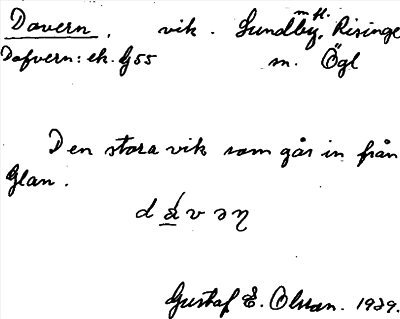 Davern, vik. Sundby, m fl. Risinge
Dafvern: ek. G 55 sn. Ögl
Den stora vik som går in från
Glan.
Gustaf E. Olsson. 1929.